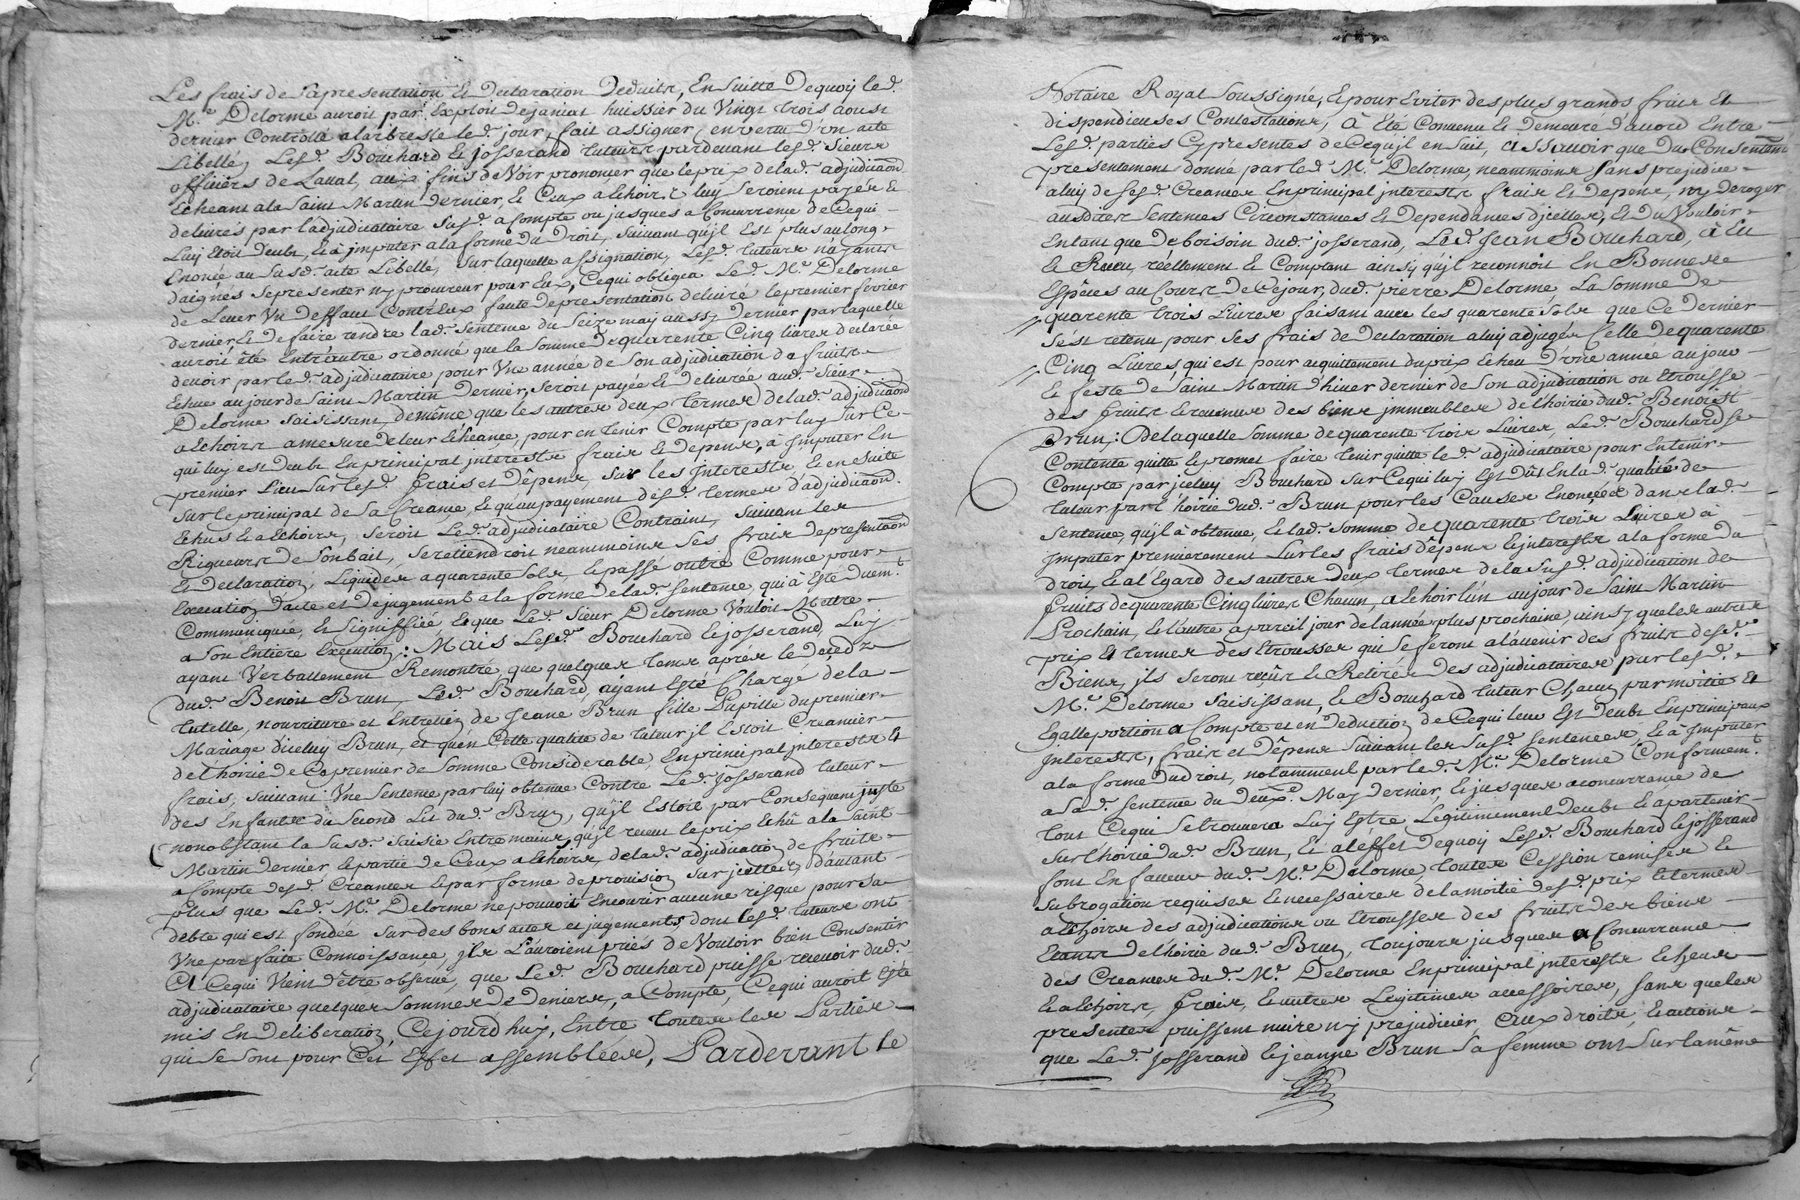 Les frais de sa presentation & declaration deduits, En suitte dequoy led.
Me. Delorme auroit par Exploit de janiat huissier du Vingt trois aoust
dernier Controllé a larbresle led. jour, fait assigner, en vertu d'un acte
Libellé, Lesd. Bouchard & josserand tuteurs pardevant lesd. Sieurs
officiers de Laval, aux fins de Voir prononcer que le prix de lad. adjudicaõn
Echeant a la Saint Martin dernier, & Ceux a Echoirs luy seroient payer &
delivrés par ladjudicataire susd. a Compte ou jusques a Concurrence de Cequi
Luy Etoit deubt, & à jmputer a la forme du Droit, suivant qu'jl Est plus au long
Enoncé au susd. acte Libellé, sur laquelle assignation, Lesd. tuteurs n'ayants
daignés se presenter ny procureur pour Eux, Cequi obligea Led. Me. Delorme
de Lever Un deffaut Contr'eux faute de presentation delivré le premier fevrier
dernier, & de faire rendre lad. sentence du seize may aussy dernier par laquelle
auroit été Entr'autre ordonné que la somme de quarente Cinq livres declarée
devoir par led. adjudicataire pour Une année de son adjudication de fruits
Echue au jour de Saint Martin Dernier, seroit payée & delivrée aud. Sieur
Delorme saisissant, de même que les autres deux termes de lad. adjudicaõn
a Echoirs a mesure de leur Echeance, pour en tenir Compte par luy sur Ce
qui luy est deubt En principal interests frais & depens, à jmputer En
premier Lieu sur lesd. frais et dêpens, sur les Interests, & en suite
sur le principal de sa Creance, & qu'au payement desd. termes d'adjudicaõn
Echus & a Echoirs, seroit Led. adjudicataire Contraint, suivant les
Rigueurs de son bail, se retiendroit neanmoins ses frais de presentaõn
& Declaration, Liquider a quarente sols, & passé outre Comme pour
Execution dacte et de jugement a la forme de lad. sentence, qui à Esté Duemt.
Communiquée, & signiffiée & que Led. Sieur Delorme Vouloit Mettre
a son Entiere Execution: Mais Lesd. Bouchard & josserand, Luy
ayant Verballement Remontré, que quelques tems aprés le decedz
dud. Benoit Brun, Led. Bouchard, ayant Esté Chargé de la
tutelle, nourriture et Entretien de Jeane Brun fille Pupille du premier
Mariage d'iceluy Brun, et qu'en Cette qualité de tuteur jl Estoit Creancier
de l'hoirie de Ce premier de somme Considerable, En principal interests &
frais, suivant Une sentence par luy obtenue Contre Led. Josserand tuteur
des Enfants du second Lit dud. Brun, qu'jl Estoit par Consequent juste
nonobstant la susd. saisie Entremains, qu'jl receut le prix Echû a la Saint
Martin dernier, & partie de Ceux a Echoirs, de lad. adjudication de fruits
a Compte desd. Creances & par forme de provision sur jcelles, d'autant
plus que Led. Me. Delorme ne pouvoit Encourir aucune risque pour sa
debte qui est fondée sur des bons actes et jugements, dont lesd. tuteurs ont
Une parfaite Connoissance, jls L'auroient priés de Vouloir bien Consentir
A Cequi Vient d'être observé, que Led. Bouchard puisse recevoir dud.
adjudicataire quelques sommes de Deniers, a Compte, Cequi auroit Esté
mis En deliberation, Cejourd'huy, Entre toutes les Parties
qui se sont pour Cet Effet assemblées, Pardevant le
Notaire Royal soussigné, & pour Eviter des plus grands frais Et
dispendieuses Contestations, à Eté Convenu & demeuré d'accord Entre
Lesd. parties Cy presentes de Cequ'jl en suit, assavoir que du Consentement
presentement donné par led. Me. Delorme, neanmoins sans prejudice
a luy de sesd. Creances En principal interests frais & depens, ny deroger
ausdites sentences Circonstances & Dependances d'jcelles, & du Vouloir
Entant que de boisoin dud. josserand, Led. Jean Bouchard, à Eu
& Receu, réellement & Comptant ainsy qu'jl reconnoit En Bonnes
Espêces au Cours de Cejour, dud. pierre Delorme La Somme de
quarente trois Livres faisant avec les quarente sols que Ce Dernier
s'ést retenu pour ses frais de Declaration a luy adjugés Celle de quarente
Cinq Livres qui est pour acquittement du prix Echeu d'une année au jour
& feste de Saint Martin d'hiver dernier de son adjudication ou Etrousse
des fruits & revenus des biens jmmeubles de l'hoirie dud. Benoist
Brun: De laquelle somme de quarente trois Livres, Led. Bouchard se
Contente quitte & promet faire tenir quitte led. adjudicataire pour En tenir
Compte par jceluy Bouchard sur Cequi luy Est dût En lad. qualité de
tuteur par l'hoirie dud. Brun pour les Causes Enoncées dans lad.
sentence, qu'jl à obtenue, & lad. somme de quarente trois Livres à
Imputer premierement sur les frais dêpens & interests a la forme du
droit, & a l'Egard des autres Deux termes de la susd. adjudication de
fruits de quarente Cinq livres Chacun, a Echoir l'un au jour de Saint Martin
Prochain, & l'autre a pareil jour de l'année plus prochaine, ainsy que les autres
prix & termes des Etrousses qui se feront a l'avenir des fruits desd.
Biens, jls seront reçûs & Retirés des adjudicataires par lesd.
Me. Delorme saisissant, & Bouchard tuteur Chacun par moitié Et
Egalle portion a Compte et en Deduction de Cequi leur Est deubt En principaux
Interests, frais et Dêpens suivant les susd. sentences, & à Imputer
a la forme du droit, notamment par led. Me. Delorme Conformemt.
a sad. sentence du May dernier, & jusques a concurrance de
tout Cequi se trouvera Luy Estre Legitimement deubt & apartenir
sur l'hoirie dud. Brun, & a l'effet dequoy Lesd. Bouchard & josserand
font En faveur dud. Me. Delorme, toutes Cession remises &
subrogation requises & necessaires de la moitié desd. prix & termes
a Echoirs des adjudications ou Etrousses des fruits des biens
Etants de l'hoirie dud. Brun, toujours jusques a Concurrance
des Creances dud. Me. Delorme En principal interests Echeus
& a Echoirs, frais, & autres Legitimes accessoires, sans que les
presentes puissent nuire ny prejudicier, aux droits, & actions
que Led. Josserand & jeanne Brun sa femme ont sur la même